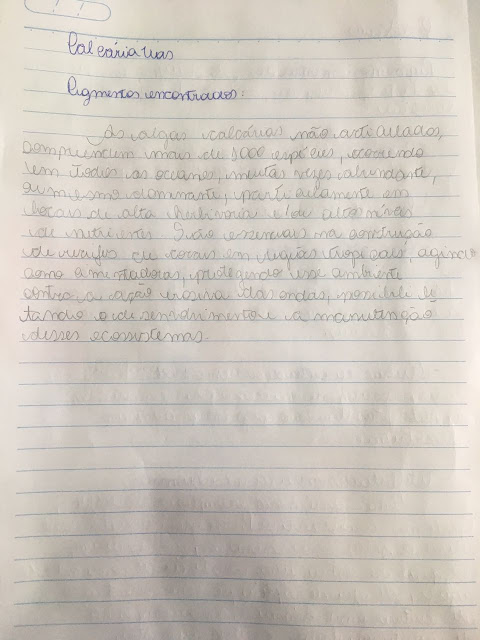 Calcárias
Pigmentos encontrados:
As algas calcárias não articuladas,
compreendem mais de 1000 espécies, ocorrendo
em todos os oceanos, muitas vezes abundante,
ou mesmo dominante, particulamente em
locais de alta herbivoria e de altos níveis
de nutrientes. São essenciais na construção
de recifes de corais em regiões tropicais, agindo
como cimentadoras, protegendo esse ambiente
contra a ação erosiva das ondas, possibili
tando o desenvolvimento e a manutenção
desses ecossistemas.